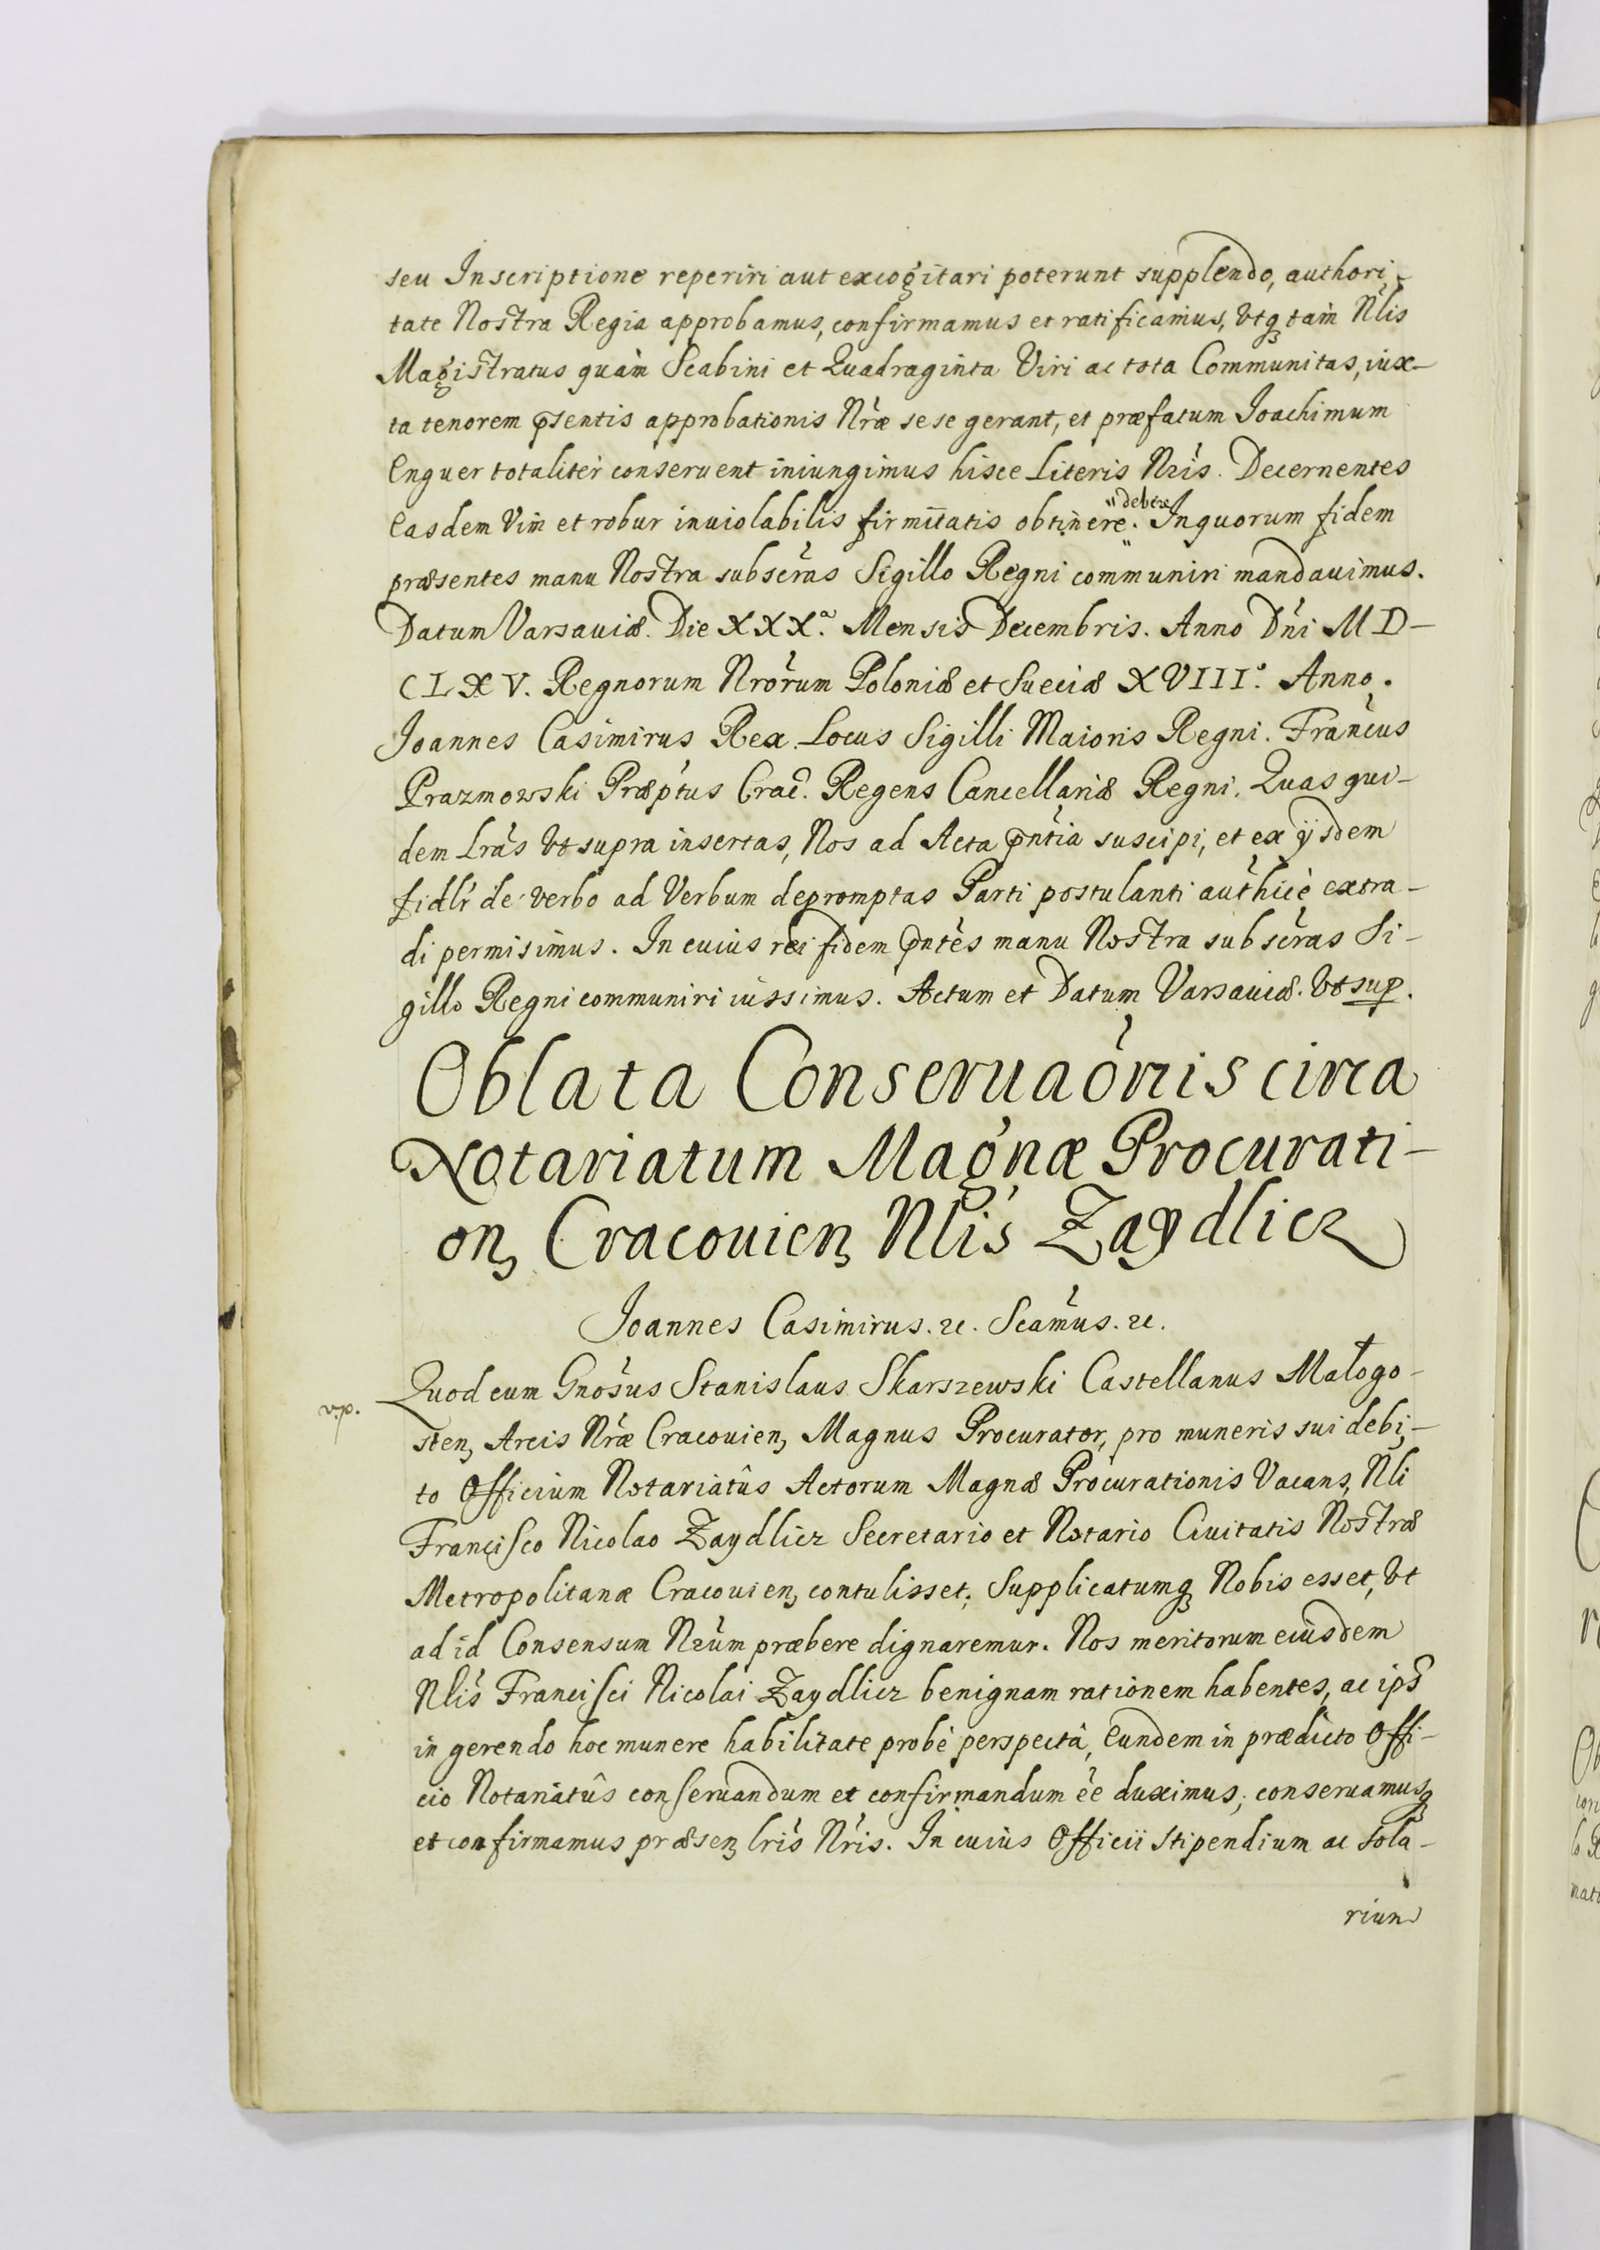 seu Inscriptione reperiri aut excogitari poterunt supplendo, authori-
tate Nostra Regia approbamus, confirmamus et ratificamus, Utq tam Nlis
Magistratus quam Scabini et Quadraginta Viri ac tota Communitas, iux-
ta tenorem pſentis approbationis Nræ sese gerant, et præfatum Ioachimum
Enguer totaliter conseruent iniungimus hisce Literis Nris. Decernentes
Easdem Vim et robur inuiolabilis firmitatis obtinere debere. In quorum fidem
præsentes manu Nostra subscras Sigillo Regni communiri mandauimus.
Datum Varsauiæ. Die XXXa. Mensis Decembris. Anno Dni MD-
CLXV. Regnorum Nrorum Poloniæ et Sueciæ XVIIIo. Anno.
Joannes Casimirus Rex. Locus Sigilli Maioris Regni. Francus
Prazmowski Præptus Crac. Regens Cancellariæ Regni. Quas qui-
dem Lras Ut supra insertas, Nos ad Acta pntia suscipi, et ex ijsdem
fidlr de verbo ad Verbum depromptas Parti postulanti authicè extra-
di permisimus. In cuius rei fidem pntes manu Nostra subscras Si-
gillo Regni communiri iussimus. Actum et Datum Varsauiæ. Ut sup.
Oblata Conseruaonis circa
Notariatum Magnæ Procurati-
on, Cracouien, Nlis Zaydlicz
Joannes Casimirus. &c. Scamus. &c.
Quod cum Gnosus Stanislaus Skarszewski Castellanus Małogo-
v.p.
sten, Arcis Nræ Cracouien, Magnus Procurator, pro muneris sui debi-
to Officium Notariatûs Actorum Magnæ Procurationis Vacans, Nli
Francisco Nicolao Zaydlicz Secretario et Notario Ciuitatis Nostræ
Metropolitanæ Cracouien, contulisset; Supplicatumq Nobis esset, Ut
ad id Consensum Nrum præbere dignaremur. Nos meritorum eiusdem
Nlis Francisci Nicolai Zaydlicz benignam rationem habentes, ac ips
in gerendo hoc munere habilitate probè perspectâ, Eundem in prædicto Offi-
cio Notariatûs conseruandum et confirmandum ee duximus; conseruamusq
et confirmamus præsen, lris Nris. In cuius Officii stipendium ac sola-
rium